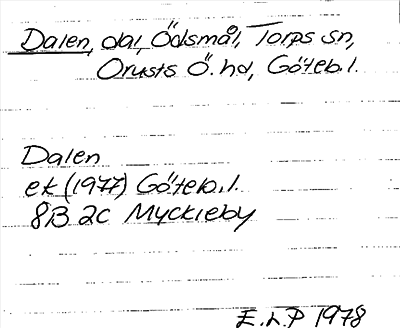 Dalen, dal, Ödsmål, Torps sn,
Orusts Ö. hd, Göteb. l.
Dalen
ek (1977) Göteb. l.
8B 2c Myckleby
E.L.P 1978